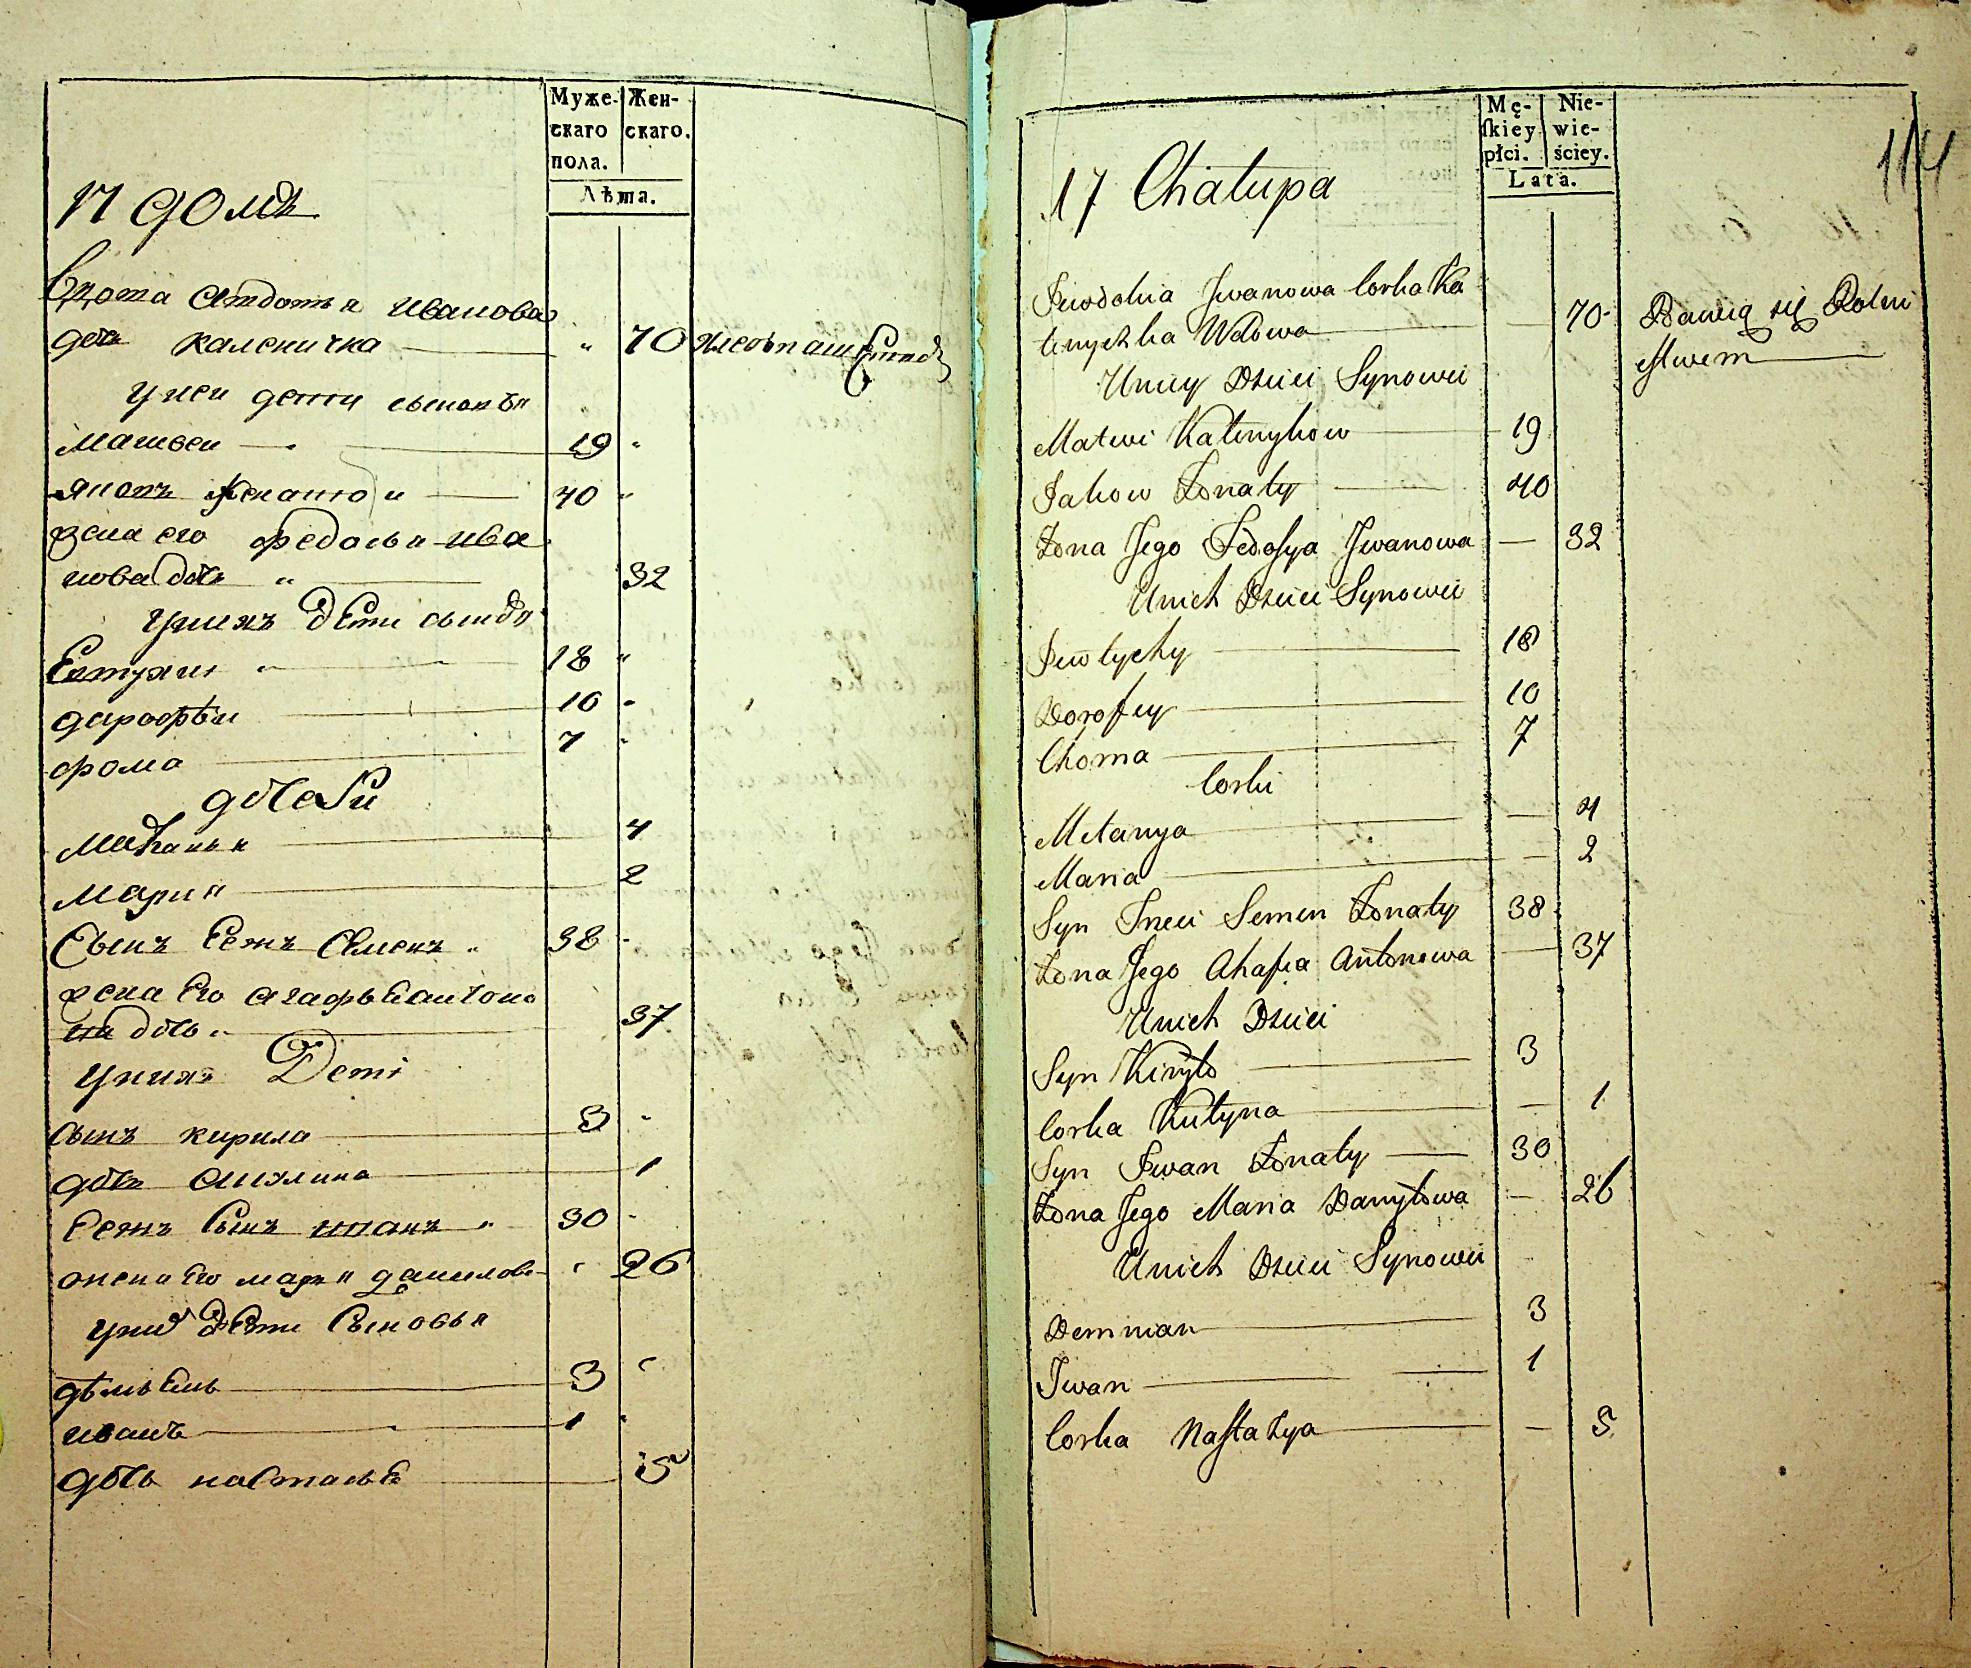 Муже- Жен-
скаго скаго.
пола.
Лѣта.
17 домъ
Вдова Авдотья Иванова
дочь каленичка " 70 хлебопашествомъ
у неи дети сыновья
Матвеи 19 "
яковъ женатои 40 "
жена его Федосья ива
нова дочь " 32
у нихъ дети сыновья
Евтухии " 18 "
дарофѣи 10 "
фома 7 "
дочери
Меланья 4
Мария 2
Сынъ Еежъ Семенъ " 38 "
жена Его агафья антоно
ва дочь " 37
у нихъ Дети
сынъ кирила 3 "
дочь 1
Еежъ Сынъ иванъ " 30 "
жена Его мария данилова " 26
у них дети Сыновья
дѣмьень 3 "
иванъ 1 "
дочь настасья 5
Mę- Nie-
skiey wie-
płci. ściey.
Lata.
114
17 Chałupa
Jewdokia Jwanowa Corka Ka
linyczka Wdowa — 70 Bawią się Rolni
ctwem
U niey Dzieci Synowei
Matwi Kalinykow 19
Jakow Żonaty 40
Żona Jego Fedosya Jwanowa — 32
U nich Dzieci Synowei
Jewtychy 18
Dorofey 10
Choma 7
Corki
Melanya — 4
Maria — 2
Syn Semen Żonaty 38
Żona Jego Ahafia Antonowa — 37
U nich Dzieci
Syn Kiryło 3
Corka — 1
Syn Iwan Żonaty 30
Żona Jego Maria Danyłowa — 26
U nich Dzieci Synowei
Demnian 3
Jwan 1
Corka Nastazya — 5